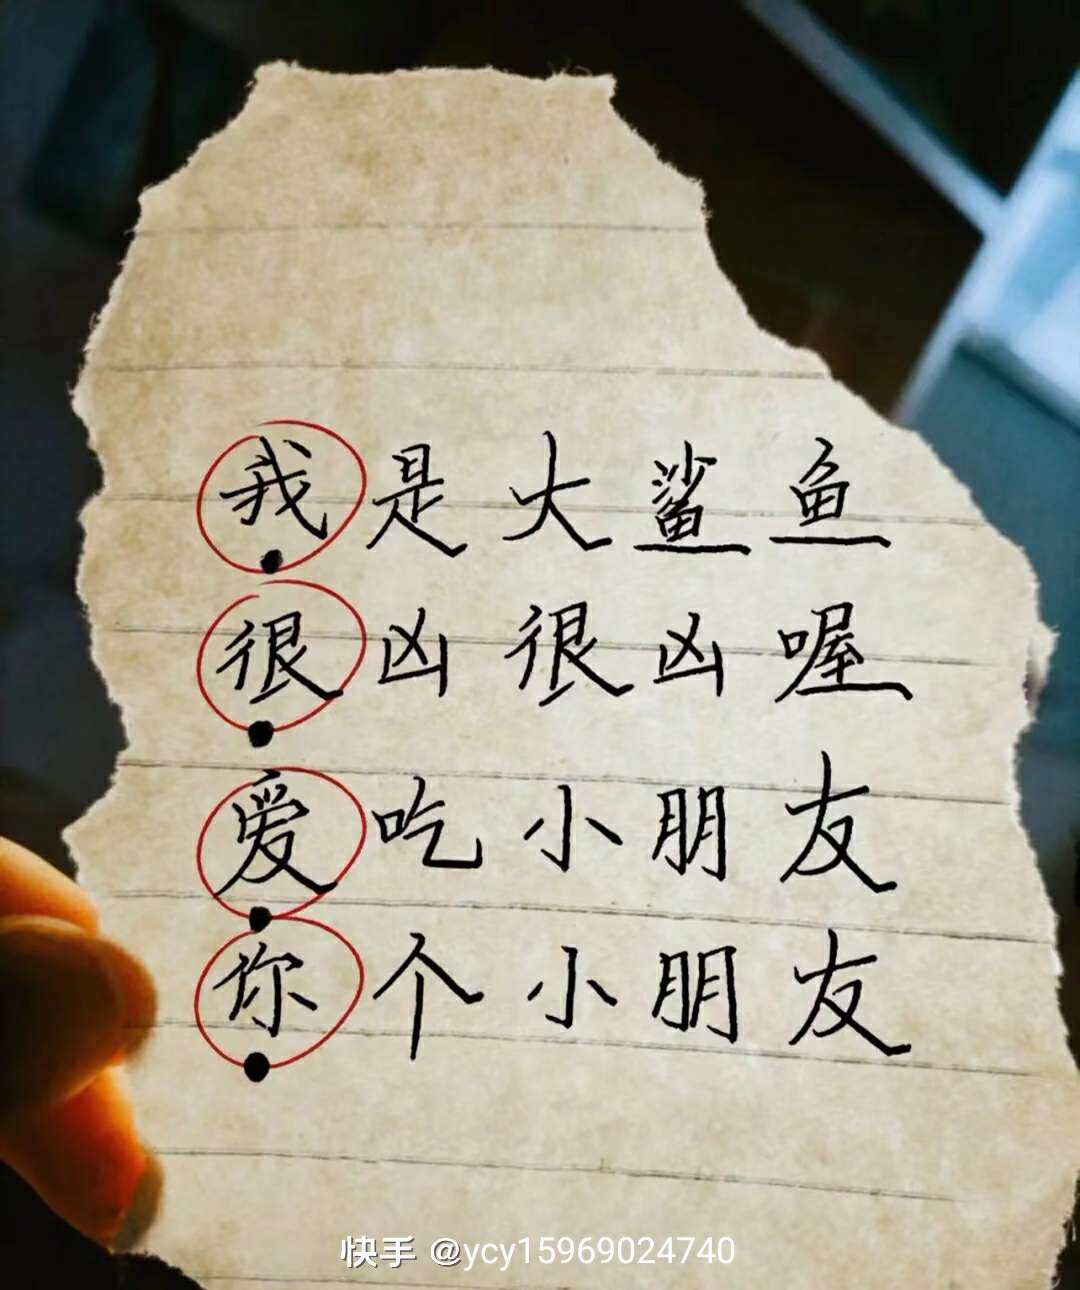 我是大鲨鱼
很凶很凶喔
爱吃小朋友
你个小朋友
快手 @ycy15969024740